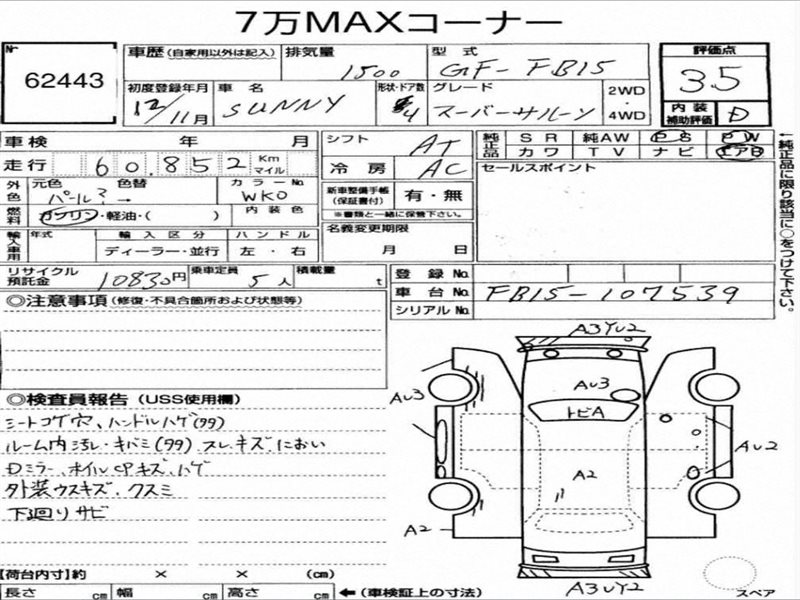 7万MAXコーナー
№ 62443
車歴 (自家用以外は記入) 排気量 1500 型式 GF-FB15 評価点 3.5
初度登録年月 12/11月 車名 SUNNY 形状・ドア数 4 グレード スーパーサルーン 2WD・4WD 内装補助評価 D
車検 年 月 シフト AT 純正品 SR 純AW PS PW
カワ TV ナビ エアB
走行 60.852 Km マイル 冷房 AC セールスポイント
外色 元色 パール? 色替 → カラーNo WK0 新車整備手帳 (保証書付) 有・無
※書類と一緒に保管下さい。
燃料 ガソリン・軽油・( ) 内装色 名義変更期限
月 日
輸入車用 年式 輸入区分 ハンドル
ディーラー・並行 左・右
リサイクル預託金 10830円 乗車定員 5人 積載量 t 登録No.
車台No. FB15-107539
シリアルNo.
←純正品に限り該当に○をつけて下さい。
◎注意事項 (修復・不具合箇所および状態等)
◎検査員報告 (USS使用欄)
シートコゲ穴、ハンドルハゲ(多々)
ルーム内汚レ・キバミ(多々) スレ.キズ.におい
Dミラー、ホイルCPキズ、ハゲ
外装ウスキズ、クスミ
下廻りサビ
A3YU2
AU3
AU3
トビA
AU2
A2
A2
A3UY2
スペア
【荷台内寸】約 × × (cm)
長さ cm 幅 cm 高さ cm ←(車検証上の寸法)